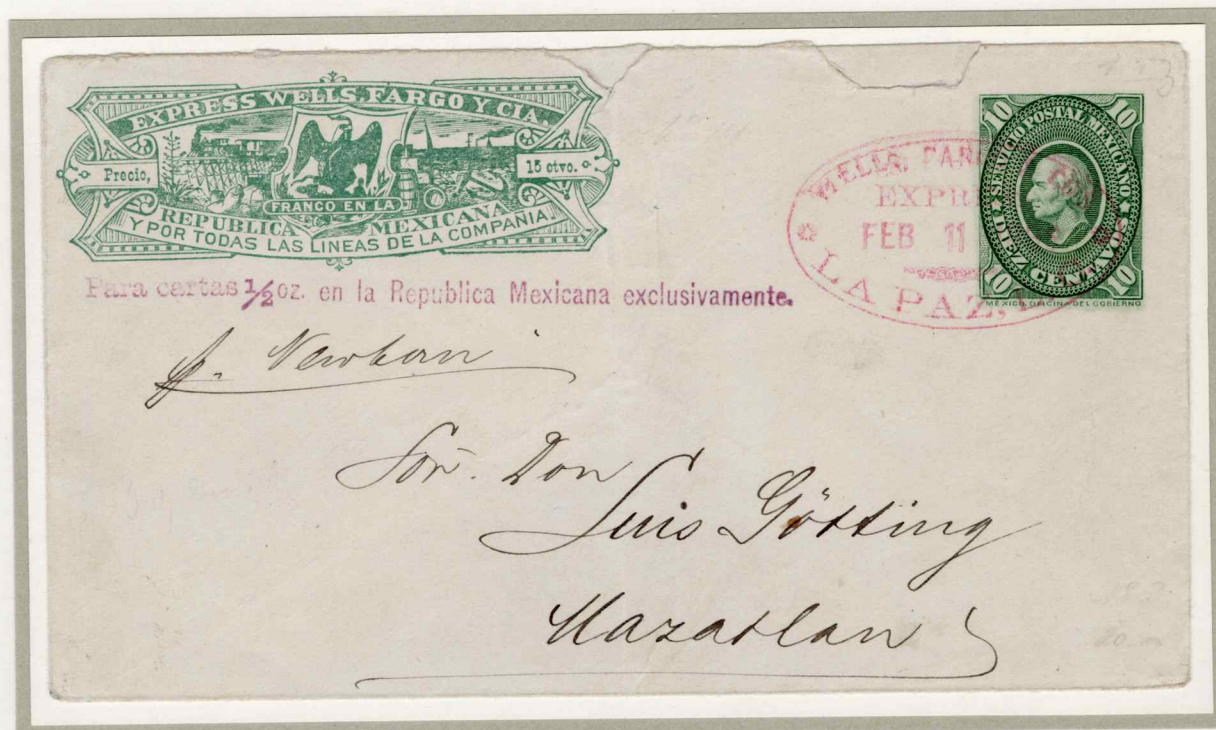 EXPRESS WELLS, FARGO Y CIA.
Precio, 15 ctvo.
FRANCO EN LA
REPUBLICA MEXICANA
Y POR TODAS LAS LINEAS DE LA COMPAÑIA.
Para cartas ½ oz. en la Republica Mexicana exclusivamente.
10 10
SERVICIO POSTAL MEXICANO
DIEZ CENTAVOS
10 10
MEXICO, OFICINA DEL GOBIERNO
WELLS, FAR
EXPRE
FEB 11
LA PAZ,
p. Newbern
Sor. Don
Luis Götting
Mazatlan